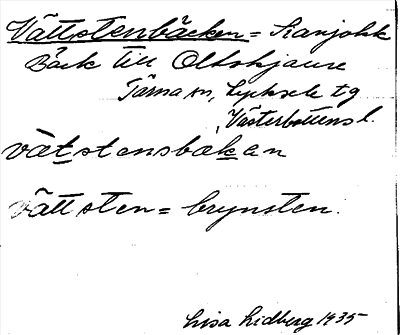 Vättstenbäcken = Kanjokk
Bäck till Oltokjaure
Tärna sn, Lycksele tg
Västerbottens l.
vätstensbäkan
Vättsten = brynsten.
Lisa Lidberg 1935